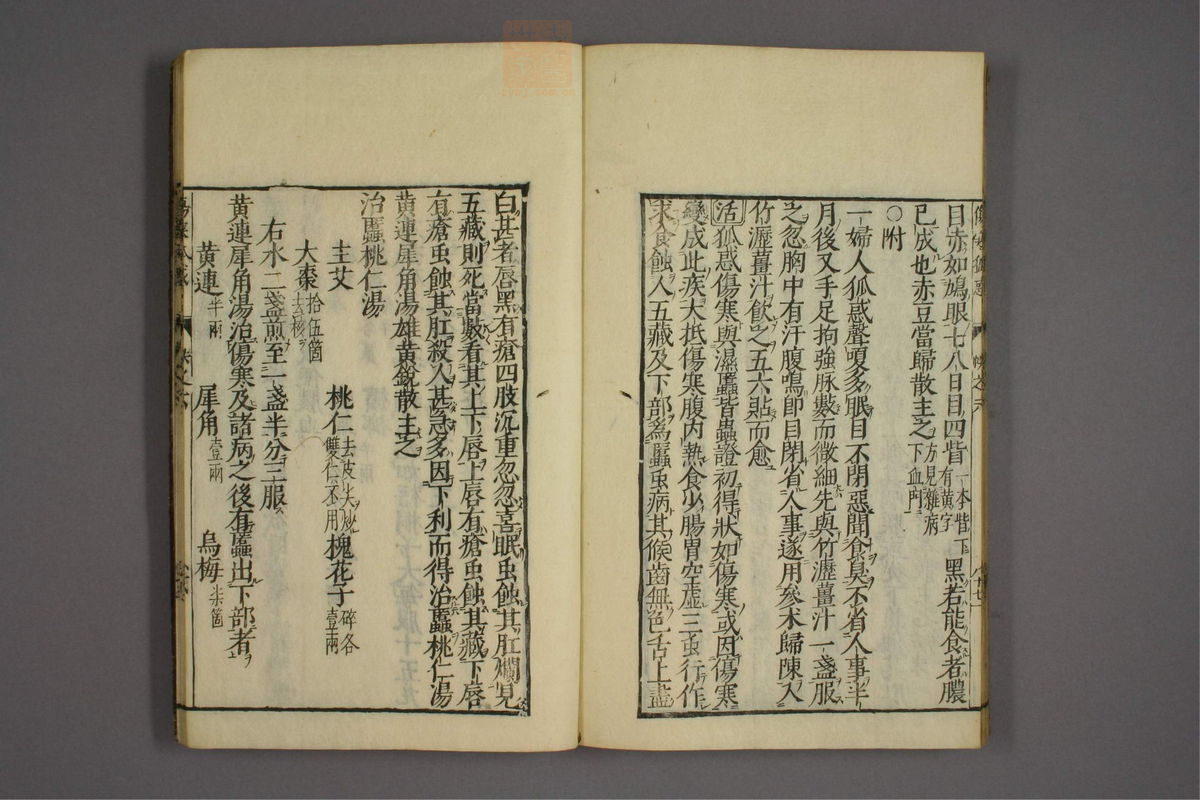 目赤如鳩眼七八日目四眥一本眥下有黄字黑若能食者膿
已成也赤豆當歸散主之方見雜病下血門
○附
一婦人狐惑聲嗄多眠目不閉惡聞食臭不省人事半
月後又手足拘強脉數而微細先與竹瀝薑汁一盞服
之忽胸中有汗腹鳴即目閉省人事遂用參术歸陳入
竹瀝薑汁飲之五六貼而愈
活狐惑傷寒與濕䘌皆蟲證初得狀如傷寒或因傷寒
變成此疾大抵傷寒腹内熱食少腸胃空虚三虫行作
求食蝕人五藏及下部為䘌虫病其候齒無色舌上盡
白甚者唇黑有瘡四肢沉重忽忽喜眠虫蝕其肛爛見
五藏則死當數看其上下唇上唇有瘡虫蝕其藏下唇
有瘡虫蝕其肛殺人甚急多因下利而得治䘌桃仁湯
黄連犀角湯雄黄銳散主之
治䘌桃仁湯
主艾 桃仁去皮尖炒雙仁不用 槐花子碎各壹兩
大棗拾伍箇去核
右水二盞煎至一盞半分三服
黄連犀角湯治傷寒及諸病之後有䘌出下部者
黄連半兩 犀角壹兩 烏梅柒箇